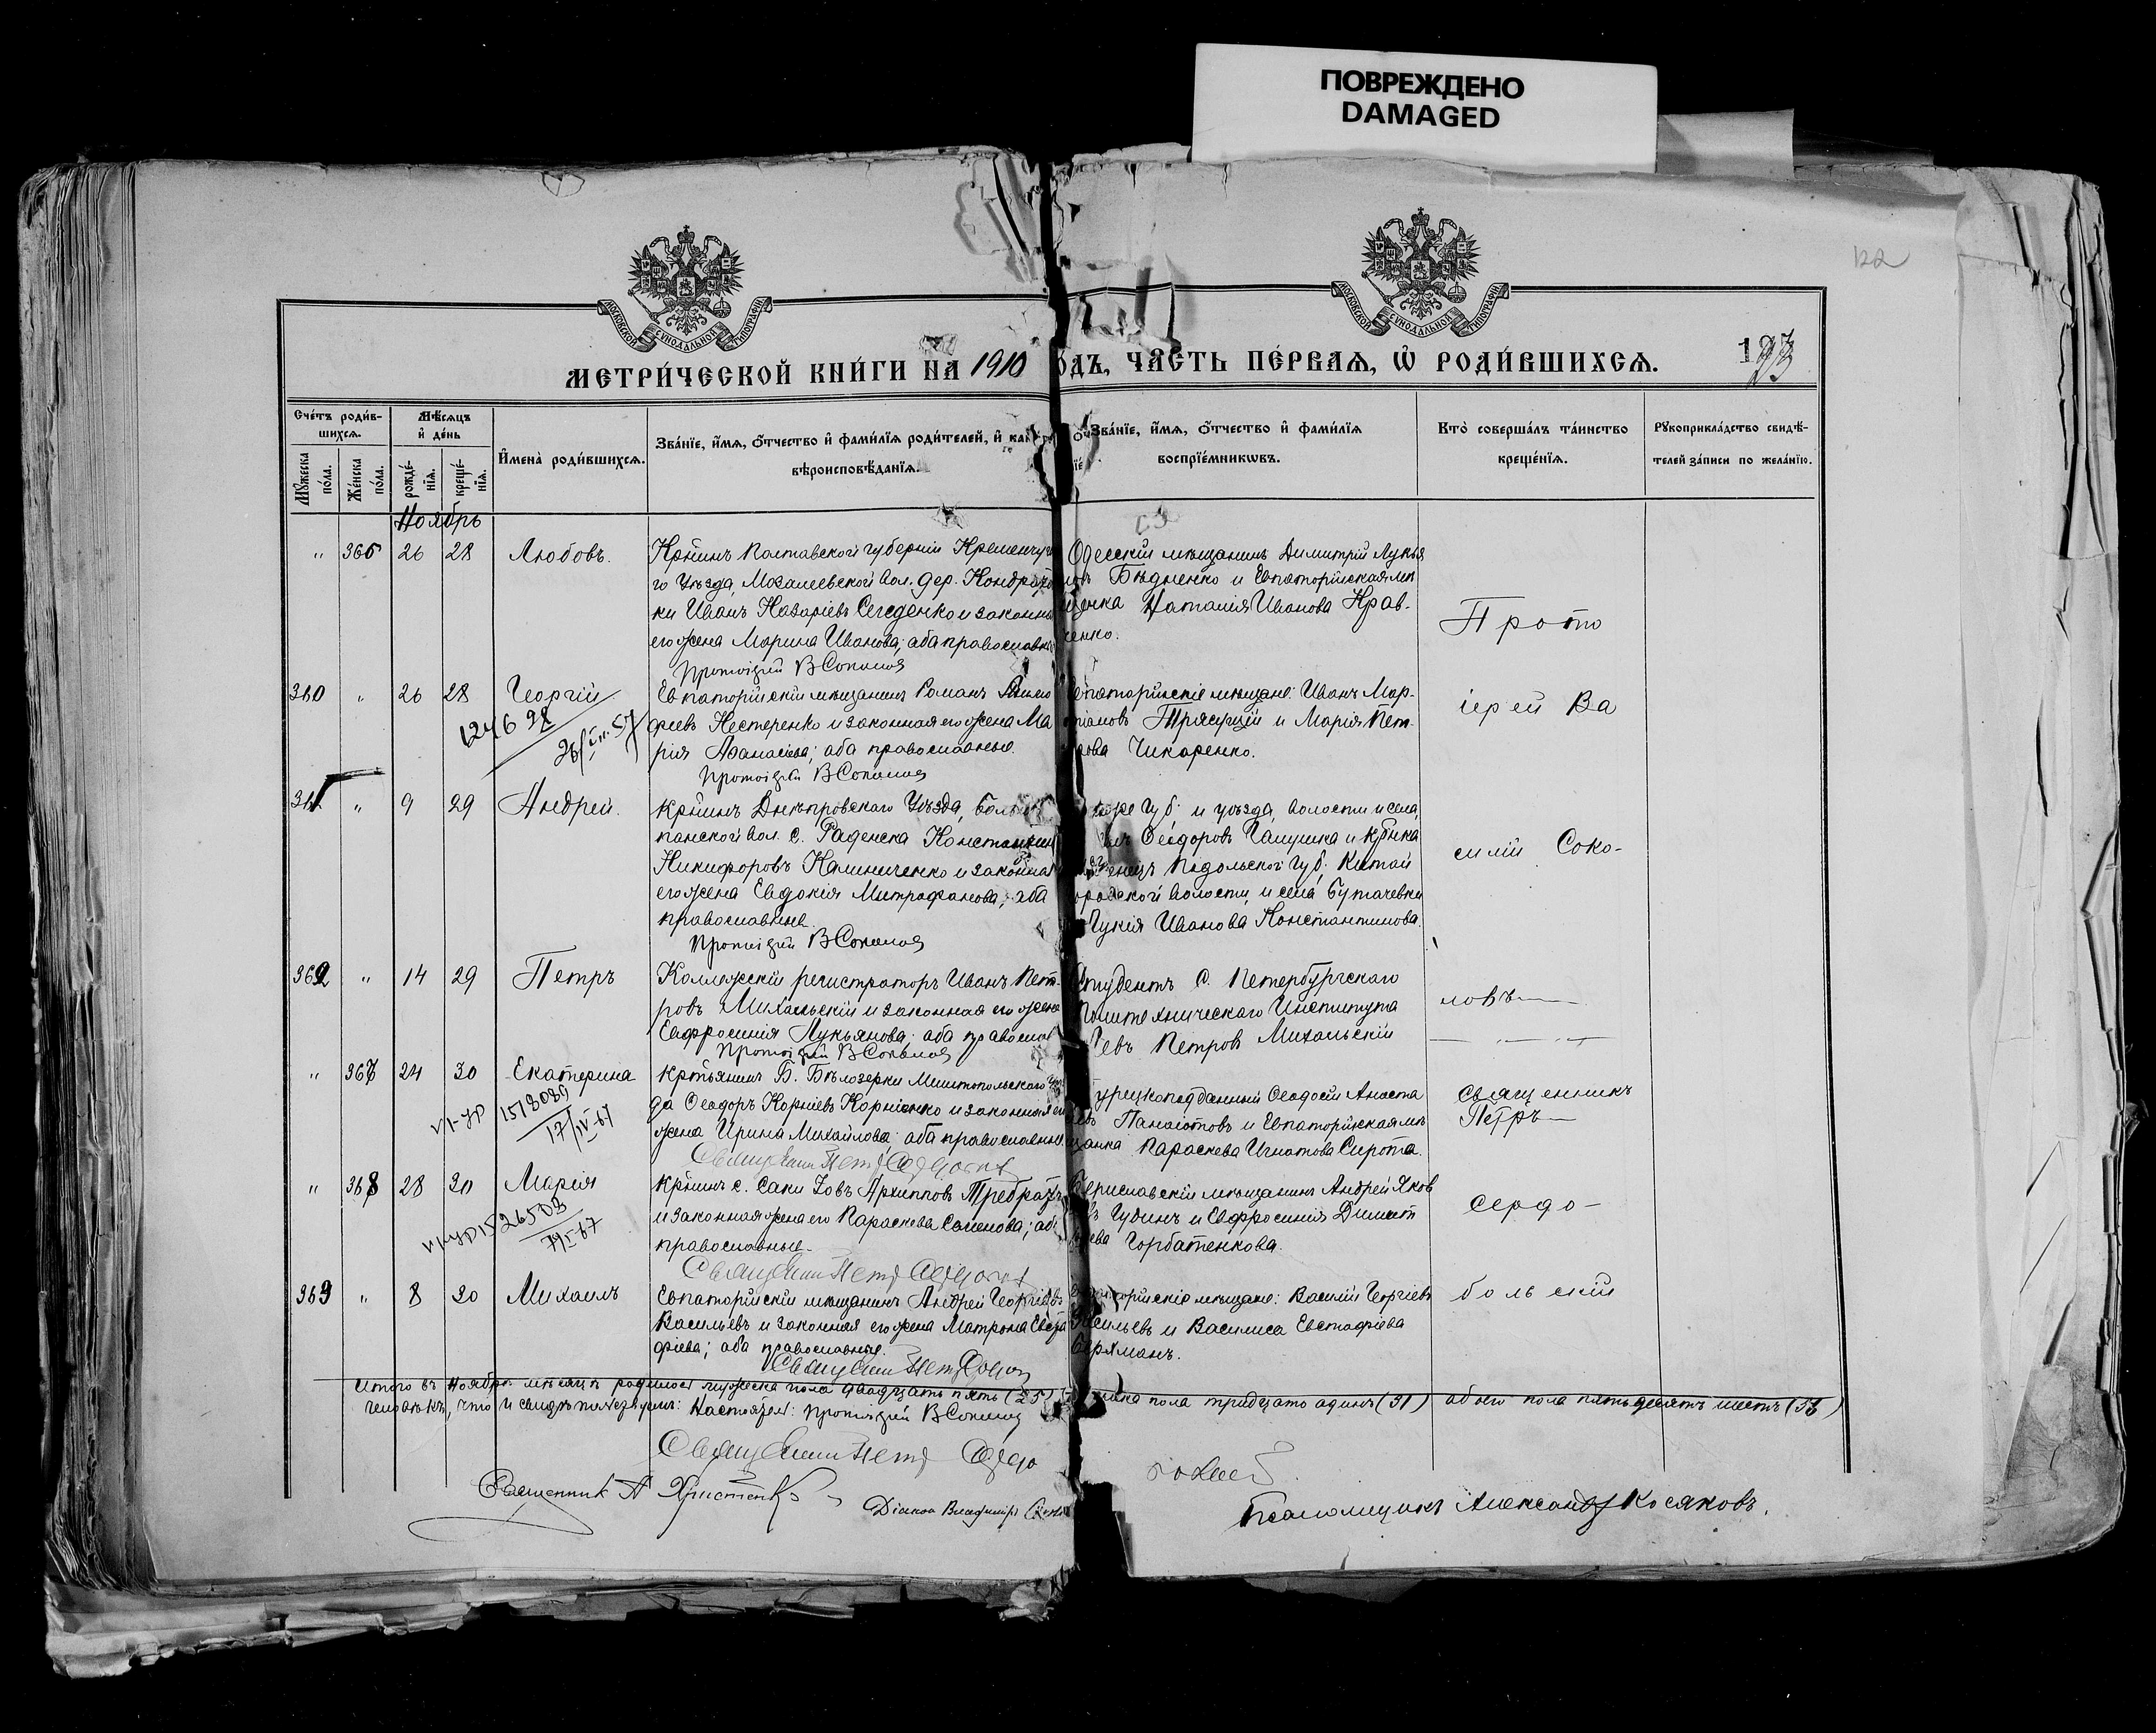 ПОВРЕЖДЕНО
DAMAGED
122
МОСКОВСКОЙ СѴНОДАЛЬНОЙ ТИПОГРАФІИ
МОСКОВСКОЙ СѴНОДАЛЬНОЙ ТИПОГРАФІИ
МЕТРИ́ЧЕСКОЙ КНИ́ГИ НА 1910
ОДЪ, ЧАСТЬ ПЕ́РВАЯ, Ѽ РОДИ́ВШИХСЯ.
Сче́тъ роди́в-
шихся.
Мѣ́сяцъ
и҆ де́нь
И҆мена̀ роди́вшихся.
Зва́нїе, и҆́мя, ѻ҆́тчество и҆ фами́лїя роди́телей, и҆ как
вѣроисповѣ́данїя.
Зва́нїе, и҆́мя, ѻ҆́тчество и҆ фами́лїя
воспрїе́мникωвъ.
Кто̀ соверша́лъ та́инство
креще́нїя.
Рꙋкоприкла́дство свидѣ́-
телей за́писи по жела́нїю.
Мꙋ́жеска по́ла.
Же́нска по́ла.
рожде́-нїя.
креще́-нїя.
Ноябрь
" 366 26 28 Любовь.
Кр̃нинъ Полтавской губерніи Кременчуг
го уѣзда, вол. дер.
ки Иванъ Назаріевъ и законная
его жена Марина Иванова; оба православные
Протоіерей В Соколов
Одесскій мѣщанинъ Димитрій Лукья
новъ Бѣдненко и Евпаторійская мѣ
щанка Наталія Иванова Крав-
ченко.
Прото
360 " 26 28 Георгій
124698
Евпаторійскій мѣщанинъ Романъ
фіевъ Нестеренко и законная его жена Ма
рія Аѳанасіева; оба православные.
Протоіерей В Соколов
Евпаторійскіе мѣщане: Иванъ Мар-
тіановъ и Марія Пет-
рова Чикаренко.
іерей Ва
361 " 9 29 Андрей.
кр̃нинъ Днѣпровскаго Уѣзда,
панской вол. с. Раденска Константинъ
Никифоровъ Калиниченко и законная
его жена Евдокія Митрофанова; оба
православные
Протоіерей В Соколов
Губ. и уѣзда, волости и села,
Ѳеодоровъ Галушка и кр̃нка
Подольской Губ. Китай
городской волости, и села
Лукія Иванова Константинова.
силій Соко-
362 " 14 29 Петръ
Коллежскій регистраторъ Иванъ Пет-
ровъ Михальскій и законная его жена
Евфросинія Лукьянова; оба православ
Протоіерей В Соколов
Студентъ С. Петербургскаго
Политехническаго Института
Левъ Петровъ Михальскій
ловъ
" 367 24 30 Екатерина
1518089
17/IV-67
крестьянинъ Б. Бѣлозерки Мелитопольскаго
да Ѳеодоръ Корніевъ Корніенко и законная его
жена Ирина Михайлова; оба православные
Священникъ Петръ Сердобольскій
Турецкоподданный Ѳеодосій Анаста
евъ Панаіотовъ и Евпаторійская мѣ
щанка Параскева Игнатова Сирота.
Священникъ
Петръ
" 368 28 30 Марія
1526503
кр̃нинъ с. Саки Іовъ Архиповъ
и законная жена его Параскева Семенова; оба
православные
Священникъ Петръ Сердобольскій
Бериславскій мѣщанинъ Андрей Яков
въ Гудинъ и Евфросинія Димит
ріева Горбатенкова.
Сердо-
363 " 8 30 Михаилъ
Евпаторійскій мѣщанинъ Андрей Георгіевъ
Васильевъ и законная его жена Матрона Евста
фіева; оба православные.
Священникъ Петръ
Евпаторійскіе мѣщане: Василій Георгіевъ
Васильевъ и Василиса Евстафіева
больскій
Итого въ Ноябрѣ мѣсяцѣ родилось мужеска пола двадцать пять (25)
женска пола тридцать одинъ (31) обоего пола пятьдесятъ шесть (56)
человѣкъ, что и свидѣтельствуемъ: Настоятел: Протоіерей В Соколов
Священникъ Петръ Сердо
больскій
Священникъ А Христенко
Діаконъ Владиміръ
Псаломщикъ Александръ Косяковъ.